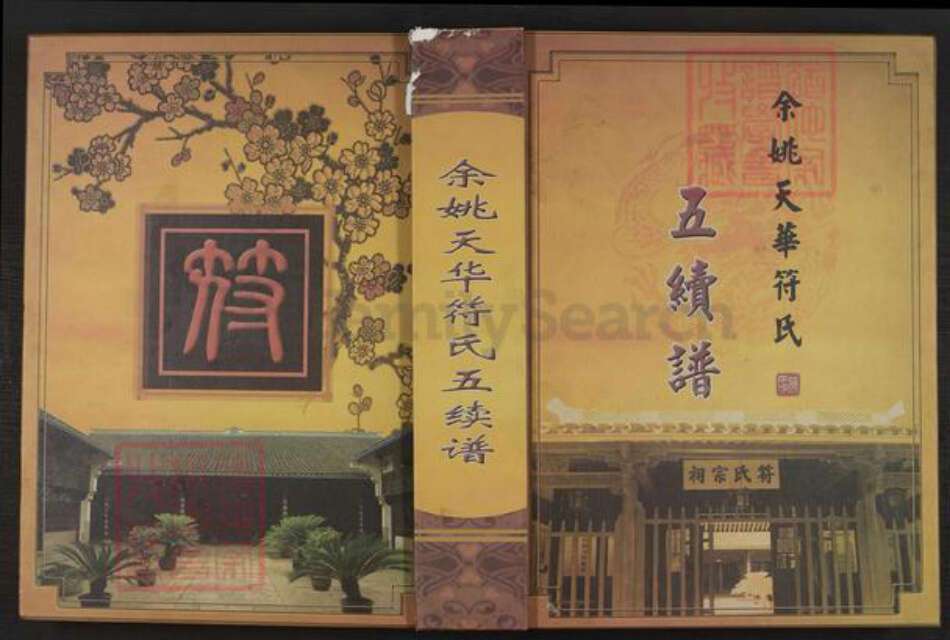 余姚天華符氏
五續譜
符氏宗祠
余姚天华符氏五续谱
符
FamilySearch